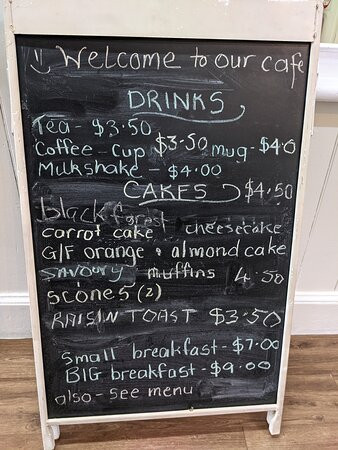 Welcome to our cafe
DRINKS
Tea - $3.50
Coffee - cup $3.50 mug - $4.0
Mulkshake - $4.00
CAKES $4.50
black forest
carrot cake cheesecake
G/F orange & almond cake
savoury muffins 4.50
scones (2)
RAISIN TOAST $3.50
Small breakfast - $7.00
BIG breakfast - $9.00
also - see menu